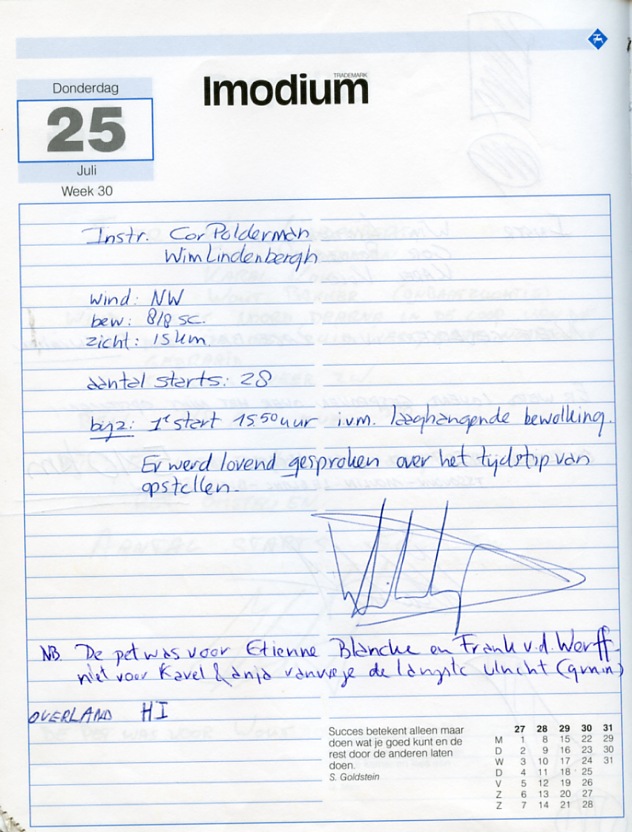 Donderdag
25
Juli
Week 30
TRADEMARK
Imodium
Instr. Cor Polderman
Wim Lindenbergh
wind: NW
bew: 8/8 sc.
zicht: 15 km.
aantal starts: 28
bijz: 1e start 15 50 uur i.v.m. laaghangende bewolking.
Er werd lovend gesproken over het tijdstip van
opstellen.
NB. De pet was voor Etienne Blanche en Frank v.d. Werff
niet voor Karel & anja vanwege de langste vlucht (9 min)
OVERLAND HI
Succes betekent alleen maar
doen wat je goed kunt en de
rest door de anderen laten
doen.
S. Goldstein
27 28 29 30 31
M 1 8 15 22 29
D 2 9 16 23 30
W 3 10 17 24 31
D 4 11 18 25
V 5 12 19 26
Z 6 13 20 27
Z 7 14 21 28